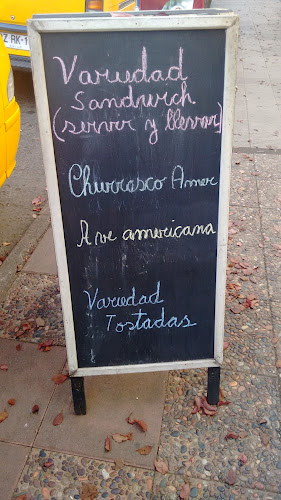 Z RK
Variedad
Sandwich
(servir y llevar)
Churrasco Amer
Ave americana
Variedad
Tostadas